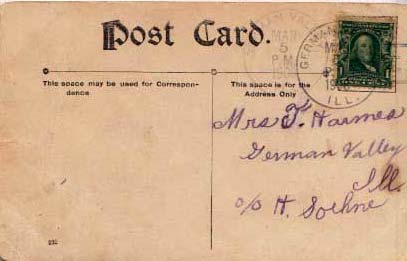 Post Card.
MAR
5
P.M.
GERMAN
ILL.
This space may be used for Correspon-
dence
This space is for the
Address Only
Mrs T. Harmes
German Valley
Ill.
c/o H. Soehne